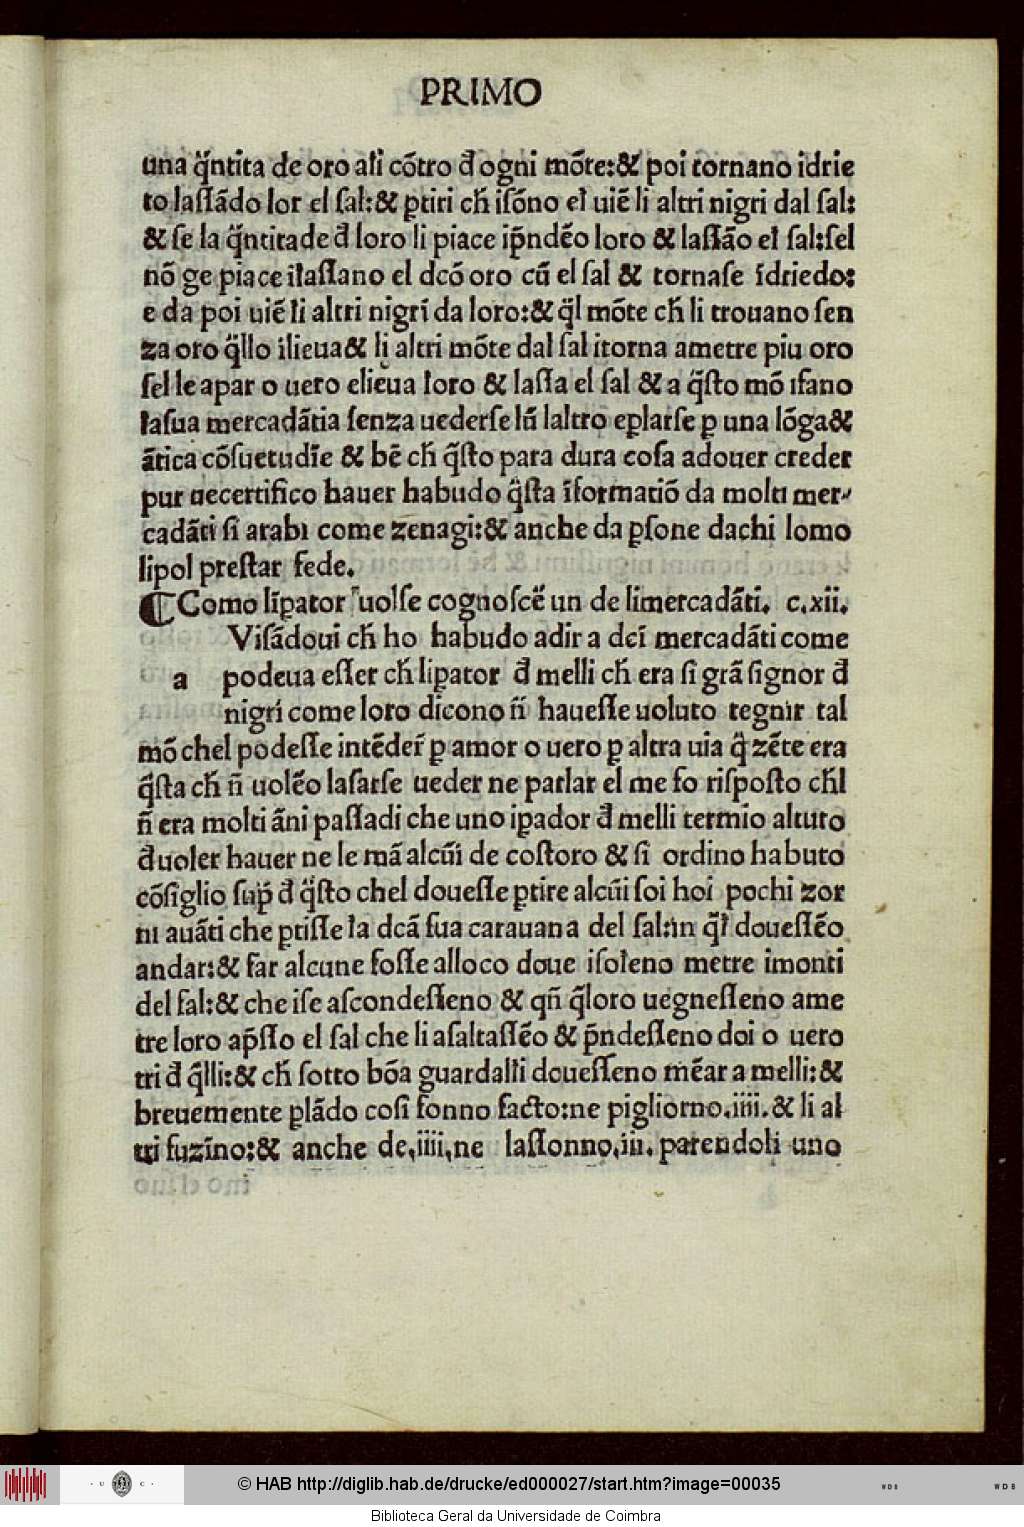 PRIMO
una q̃ntita de oro alĩ cõtro đ ogni mõte:& poi tornano idrie
to laſſãdo lor el ſal:& ꝑtiti cħ iſõno eł uiẽ li altri nigri dal ſal:
& ſe la q̃ntita de đ loro li piace ip̃ndẽo loro & laſſão eł ſal:ſel
nõ ge piace ilaſſano el dcõ oro cũ el ſal & tornaſe ĩdriedo:
e da poi uiẽ li altri nigrĩ da loro:& q̃l mõte cħ li trouano ſen
za oro q̃llo ilieua & li altri mõte dal ſal itorna ametre piu oro
ſel le apar o uero elieua loro & laſſa el ſal & a q̃ſto mõ ıfano
laſua mercadãtia ſenza uederſe lũ laltro eꝑlarſe ꝑ una lõga &
ãtica cõſuetudĩe & bẽ cħ q̃ſto para dura coſa adouer creder
pur uecertifico hauer habudo q̃ſta ĩformatiõ da molti mer-
cadãti ſi arabi come zenagi:& anche da ꝑſone dachi lomo
lipol preſtar fede.
Como liꝑator uolſe cognoſcẽ un de limercadãti. c.xii.
Viſãdoui cħ ho habudo adir a deĩ mercadãti come
a podeua eſſer cħ liꝑator đ melli cħ era ſi grã ſignor đ
nigri come loro dicono ñ haueſſe uoluto tegnir tal
mõ chel podeſſe intẽder̃ ꝑ amor o uero ꝑ altra uia q̃ zẽte era
q̃ſta cħ ñ uolẽo laſarſe ueder ne parlar el me fo riſpoſto cħl
ñ era molti ãni paſſadi che uno iꝑador đ melli termio altuto
đuoler hauer ne le mã alcũi de coſtoro & ſi ordino habuto
cõſiglio ſup̃ đ q̃ſto chel doueſſe ꝑtire alcũi ſoi hoi pochi zor
ni auãti che ꝑtiſſe la dcã ſua carauana del ſal:in q̃ł doueſſẽo
andar:& far alcune foſſe alloco doue iſoleno metre imonti
del ſal:& che iſe aſcondeſſeno & qñ q̃loro uegneſſeno ame
tre loro ap̃ſſo el ſal che li aſaltaſſẽo & p̃ndeſſeno doi o uero
tri đ q̃lli:& cħ ſotto bõa guardalĩ doueſſeno mẽar a melli:&
breuemente ꝑlãdo coſi fonno facto:ne pigliorno.iiii.& li al
tri fuzĩno:& anche de.iiii.ne laſſonno.iii.parendoli uno
© HAB http://diglib.hab.de/drucke/ed000027/start.htm?image=00035
WDB
WDB
Biblioteca Geral da Universidade de Coimbra